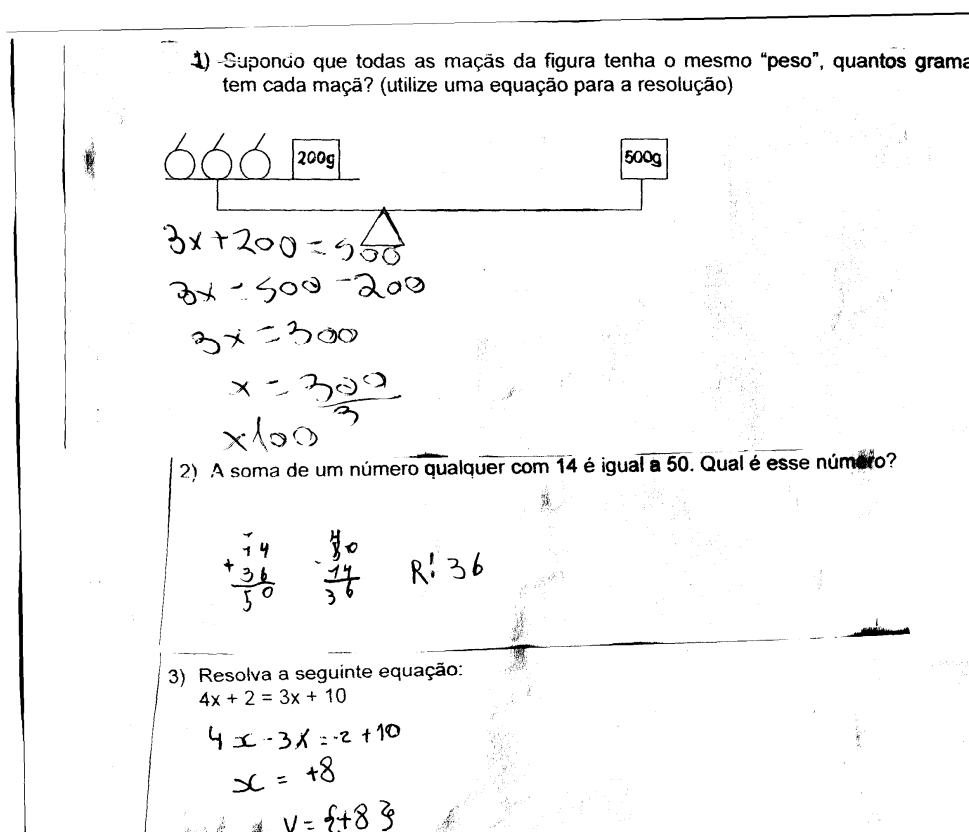 1) Supondo que todas as maçãs da figura tenha o mesmo “peso”, quantos grama
tem cada maçã? (utilize uma equação para a resolução)
200g 500g
3x + 200 = 500
3x = 500 - 200
3x = 300
x = 300
3
x 100
2) A soma de um número qualquer com 14 é igual a 50. Qual é esse número?
14 50
+ 36 - 14 R: 36
50 36
3) Resolva a seguinte equação:
4x + 2 = 3x + 10
4x - 3x = -2 + 10
x = +8
V = {+8}